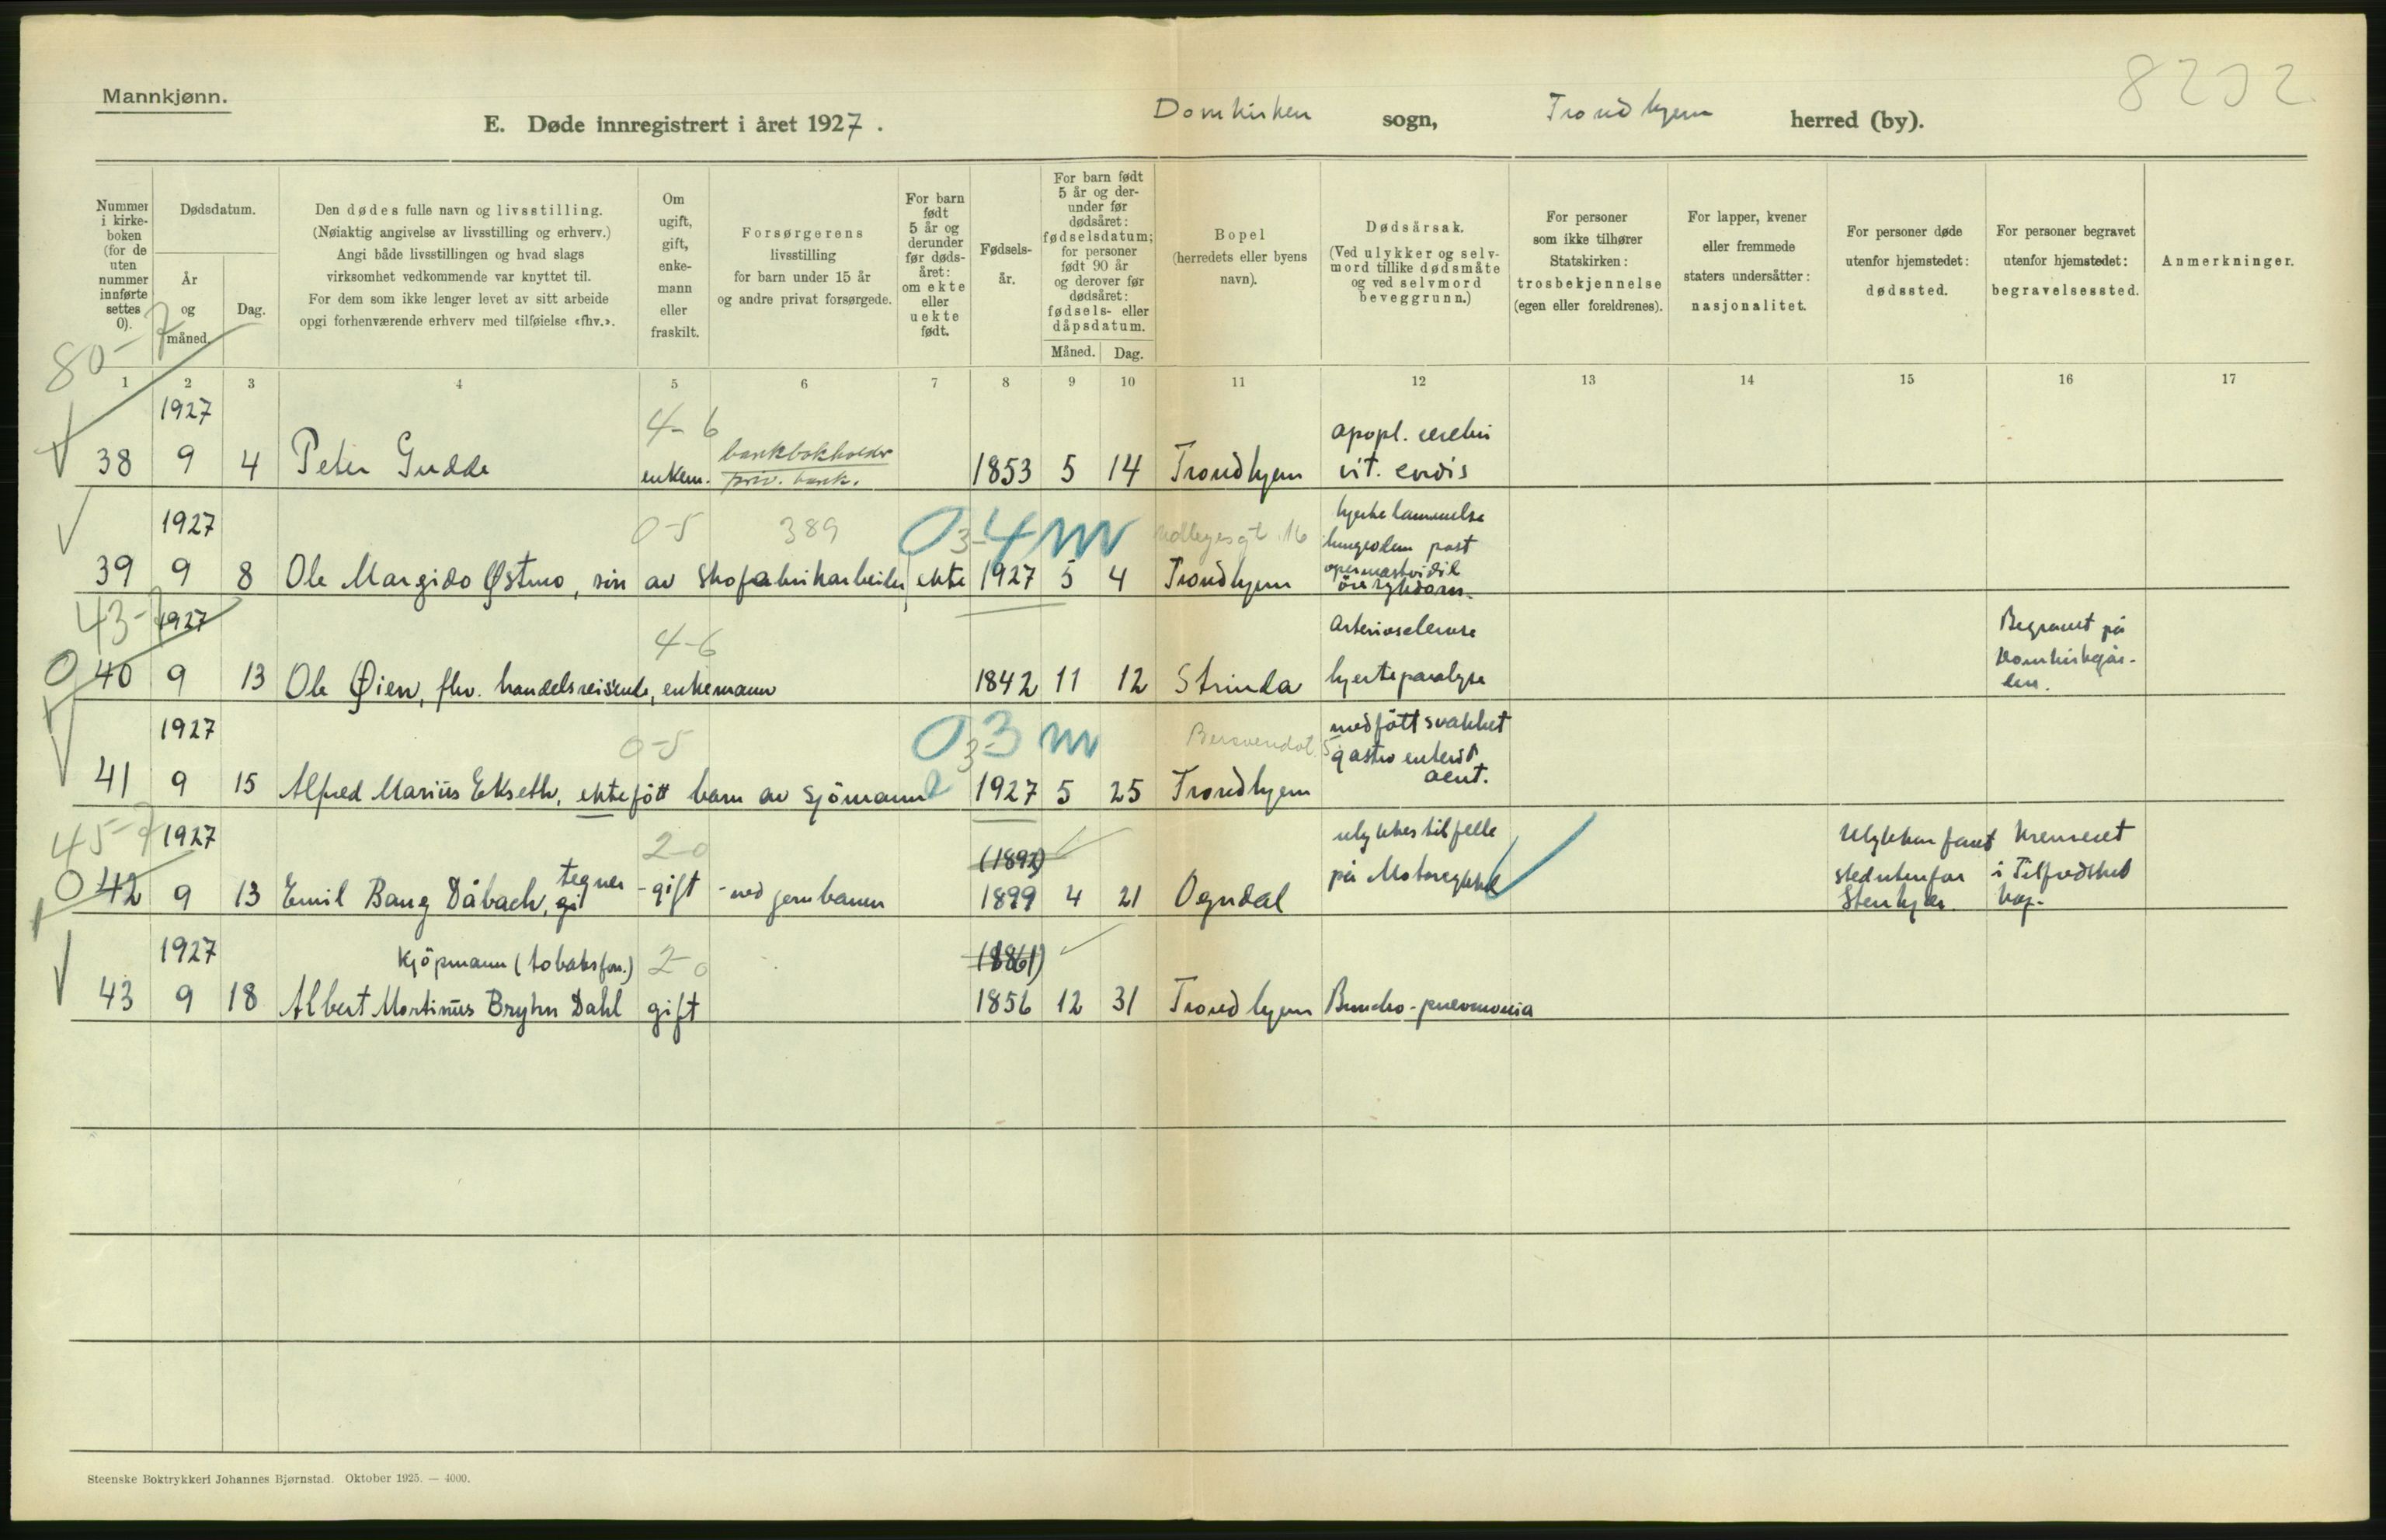 Mannkjønn.
E. Døde innregistrert i året 1927.
Domkirken sogn, Trondhjem herred (by).
Nummer i kirkeboken (for de uten nummer innførte settes 0).
Dødsdatum.
År og måned.
Dag.
Den dødes fulle navn og livsstilling.
(Nøiaktig angivelse av livsstilling og erhverv.)
Angi både livsstillingen og hvad slags
virksomhet vedkommende var knyttet til.
For dem som ikke lenger levet av sitt arbeide
opgi forhenværende erhverv med tilføielse «fhv.».
Om ugift, gift, enkemann eller fraskilt.
Forsørgerens
livsstilling
for barn under 15 år
og andre privat forsørgede.
For barn født 5 år og derunder før dødsåret: om ekte eller uekte født.
Fødselsår.
For barn født 5 år og derunder før dødsåret: fødselsdatum; for personer født 90 år og derover før dødsåret: fødsels- eller dåpsdatum.
Måned. Dag.
Bopel
(herredets eller byens
navn).
Dødsårsak.
(Ved ulykker og selvmord tillike dødsmåte og ved selvmord beveggrunn.)
For personer
som ikke tilhører
Statskirken:
trosbekjennelse
(egen eller foreldrenes).
For lapper, kvener
eller fremmede
staters undersåtter:
nasjonalitet.
For personer døde
utenfor hjemstedet:
dødssted.
For personer begravet
utenfor hjemstedet:
begravelsessted.
Anmerkninger.
80-7
1 2 3 4 5 6 7 8 9 10 11 12 13 14 15 16 17
1927 4-6 bankbokholder apopl. cerebri
38 9 4 Peter Gudde enkem. priv. bank. 1853 5 14 Trondhjem vit. cordis
1927 0-5 389 0 3-4 m 16 hjertelammelse
lungeødem post
39 9 8 Ole Margido Østmo, sön av skofabrikarbeider ekte 1927 5 4 Trondhjem
öresykdom.
43-7 1927 4-6 Arteriosclerose Begravet på
40 9 13 Ole Øien, fhv. handelsreisende, enkemann 1842 11 12 Strinda hjerteparalyse Domkirkegår-
den.
1927 0-5 0 3-3 m medfött svakhet
gastro enterit
41 9 15 Alfred Marius Ekseth, ektefött barn av sjömann 1927 5 25 Trondhjem acut.
45-7 1927 2-0 (1892) ulykkestilfelle Ulykken fant Kremeret
42 9 13 Emil Bang Dåbach, tegner gi - gift - ved jernbanen 1899 4 21 Ogndal på Motorcykkel sted utenfor i Tilfredshet
Stenkjer. kap.
1927 kjöpmann (tobaksforr.) 2-0 (1861)
43 9 18 Albert Martinus Bryhn Dahl gift 1856 12 31 Trondhjem Broncho-pneumonia
Steenske Boktrykkeri Johannes Bjørnstad. Oktober 1925. — 4000.